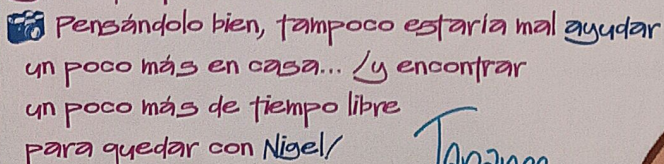 Pensándolo bien, tampoco estaría mal ayudar
un poco más en casa... ¡y encontrar
un poco más de tiempo libre
para quedar con Nigel!